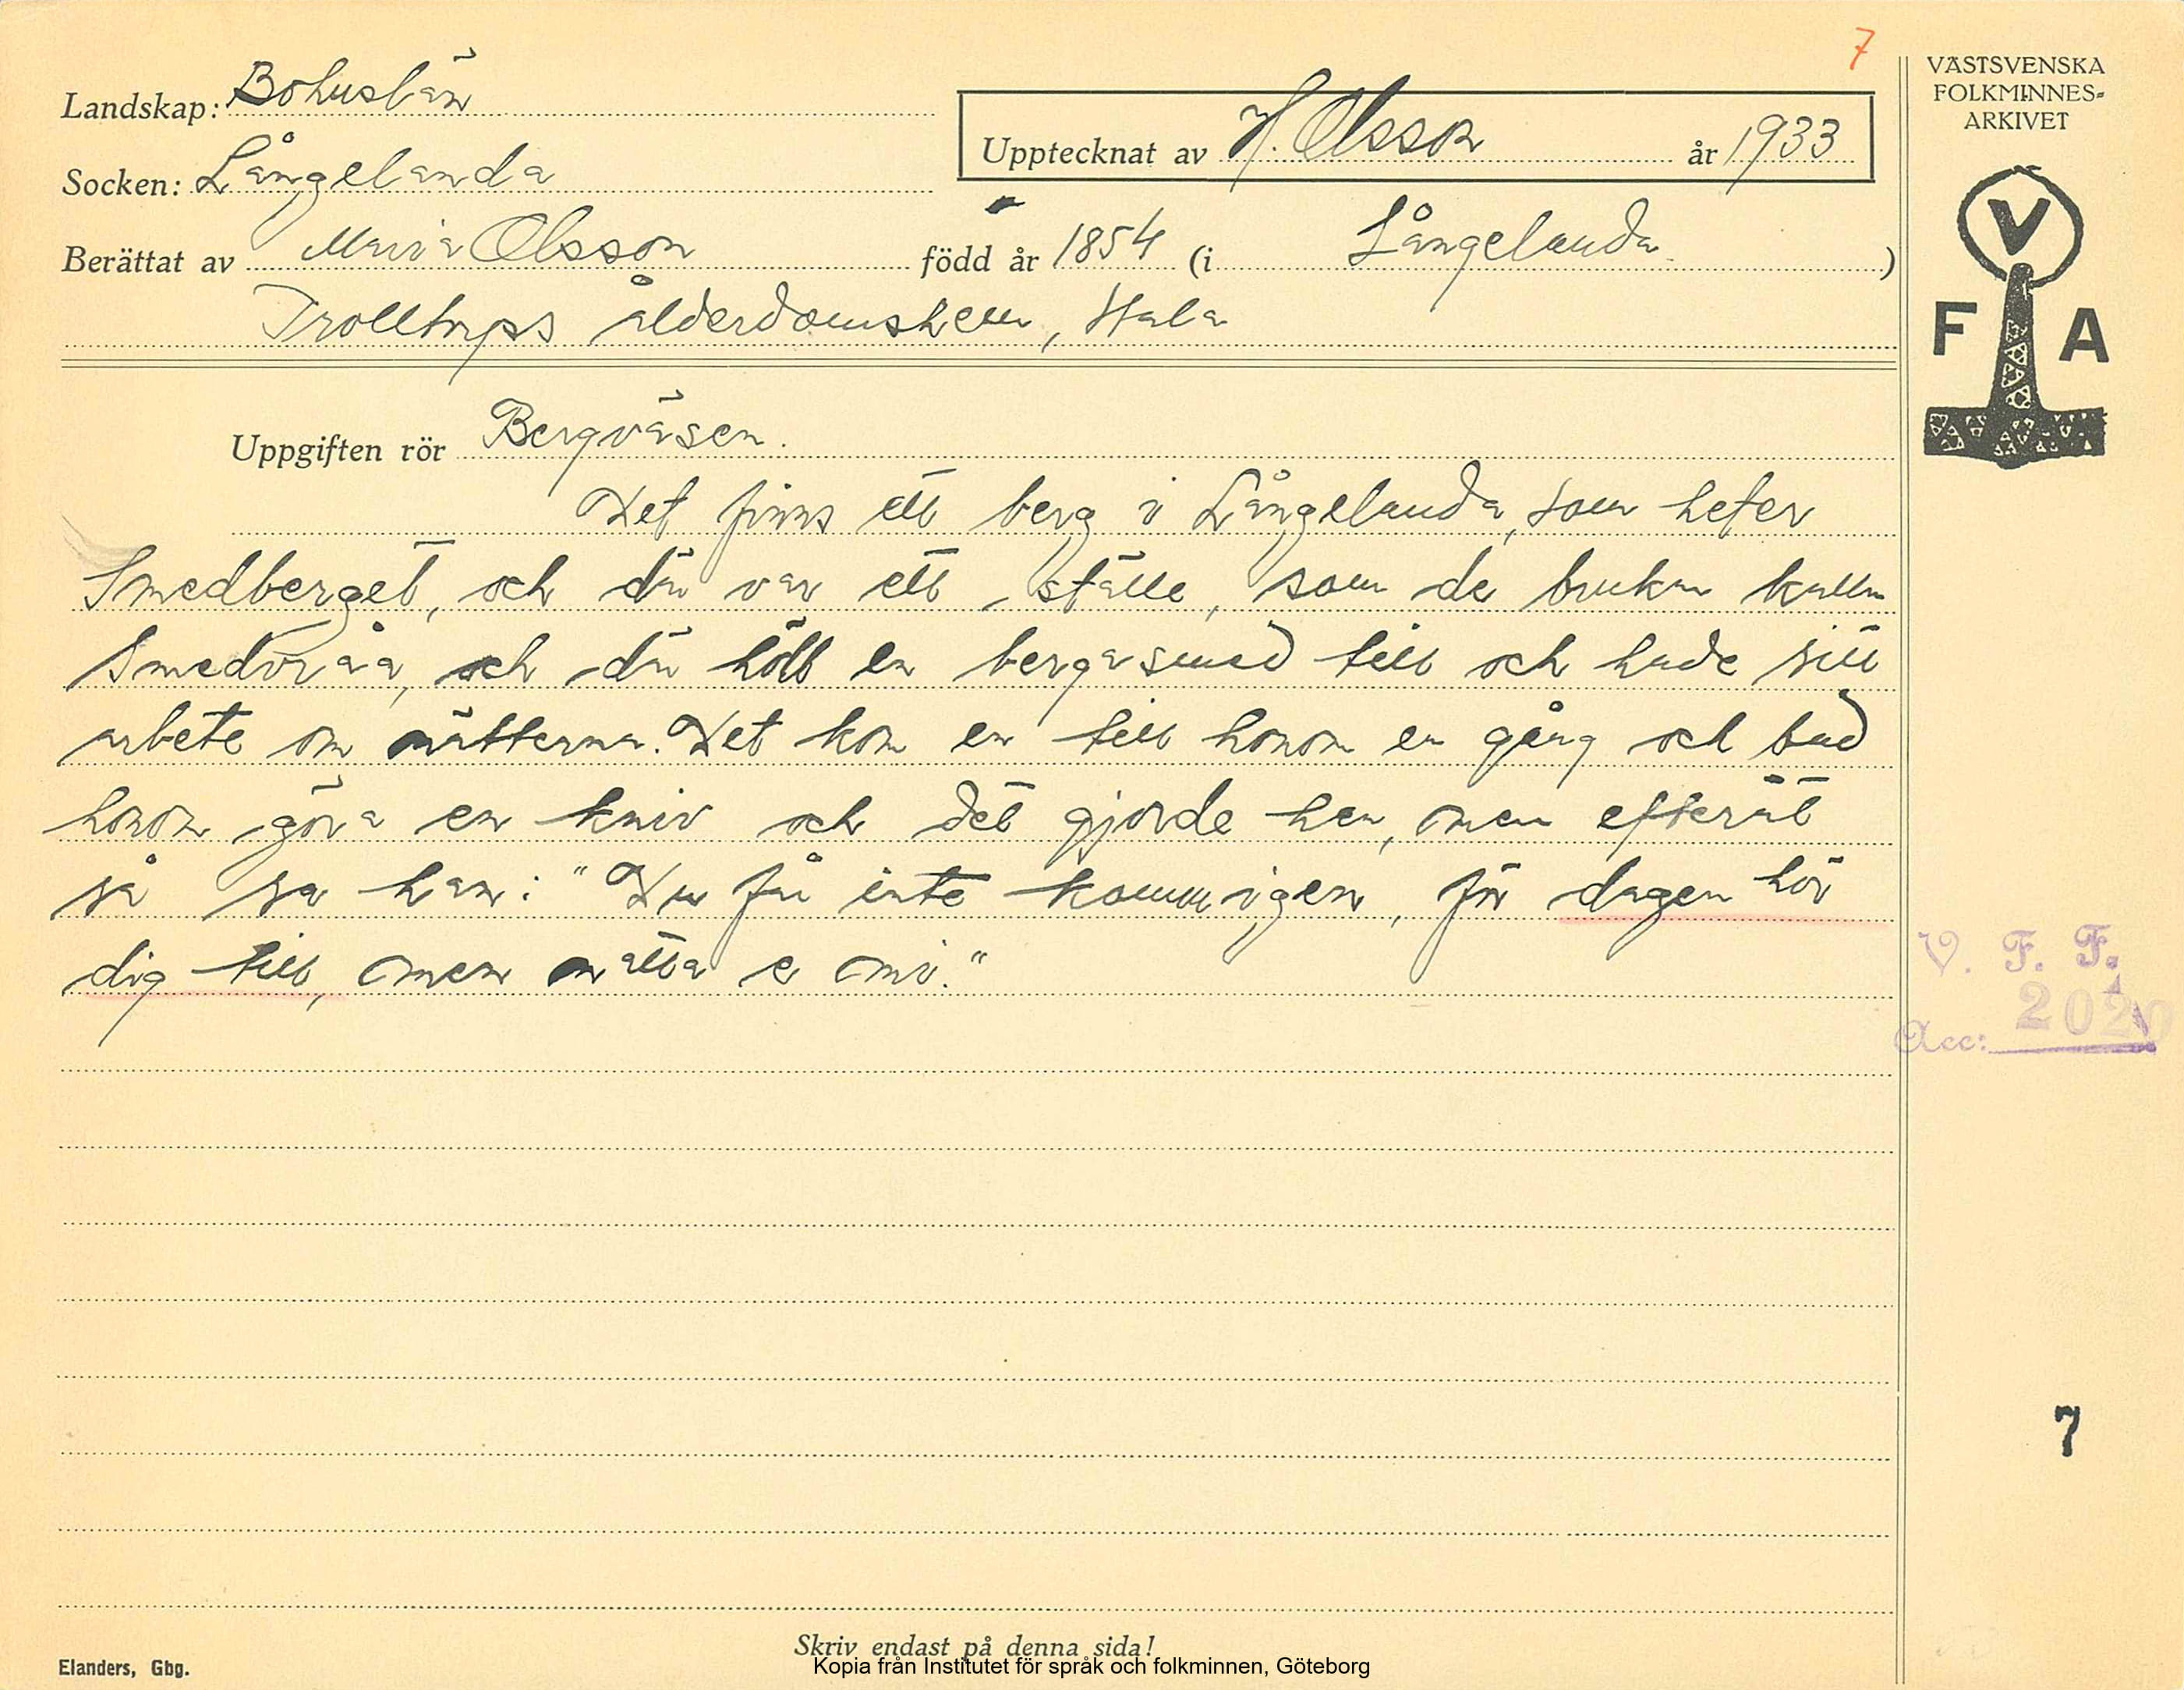 7
VÄSTSVENSKA
FOLKMINNES-
ARKIVET
Landskap: Bohuslän
Upptecknat av H. Olsson år 1933
Socken: Långelanda
Berättat av Maria Olsson född år 1854 (i Långelanda)
Trolltorps ålderdomshem, Stala
V
F A
Uppgiften rör Bergväsen.
Det finns ett berg i Långelanda, som heter
Smedberget, och där var ett ställe, som de bruka kalla
och där höll en bergasmed till och hade sitt
arbete om nätterna. Det kom en till honom en gång och bad
honom göra en kniv och det gjorde han, men efteråt
så sa han: "Du får inte komma igen, för dagen hör
dig till, men natta e mi."
V. F. F.
Acc: 2020
7
Skriv endast på denna sida!
Elanders, Gbg.
Kopia från Institutet för språk och folkminnen, Göteborg